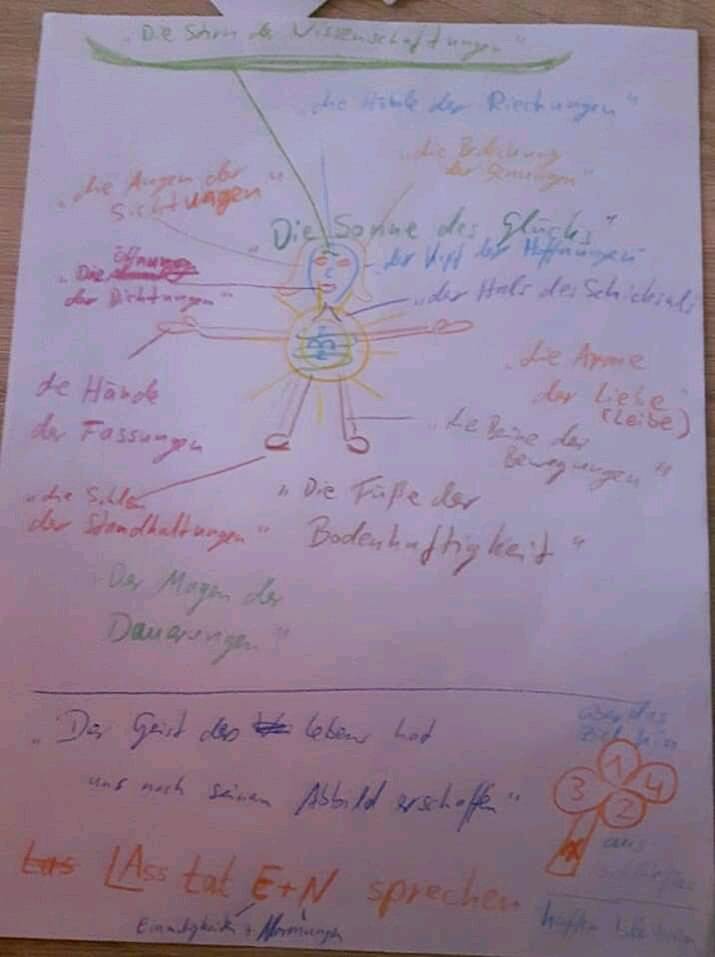 "Die Stirn der Wissenschaftungen"
"die Höhle der Riechungen"
"die Augen der
Sichtungen"
"die
der
"Die Sonne des Glücks"
"Die Öffnung
der Dichtungen"
der der Hoffnungen
"der Hals des Schicksals
"die Arme
der Liebe"
(Leibe)
die Hände
der Fassungen
"die Beine der
Bewegungen"
"die
der Standhaltungen"
"Die Füße der
Bodenhaftigkeit"
Der Magen der
Dauerungen"
"Der Geist des lebens hat
uns nach seinem Abbild erschaffen"
über das
Ziel hin
1
3
4
2
aus
Las LAss tat E+N sprechen
+ Normungen
haften